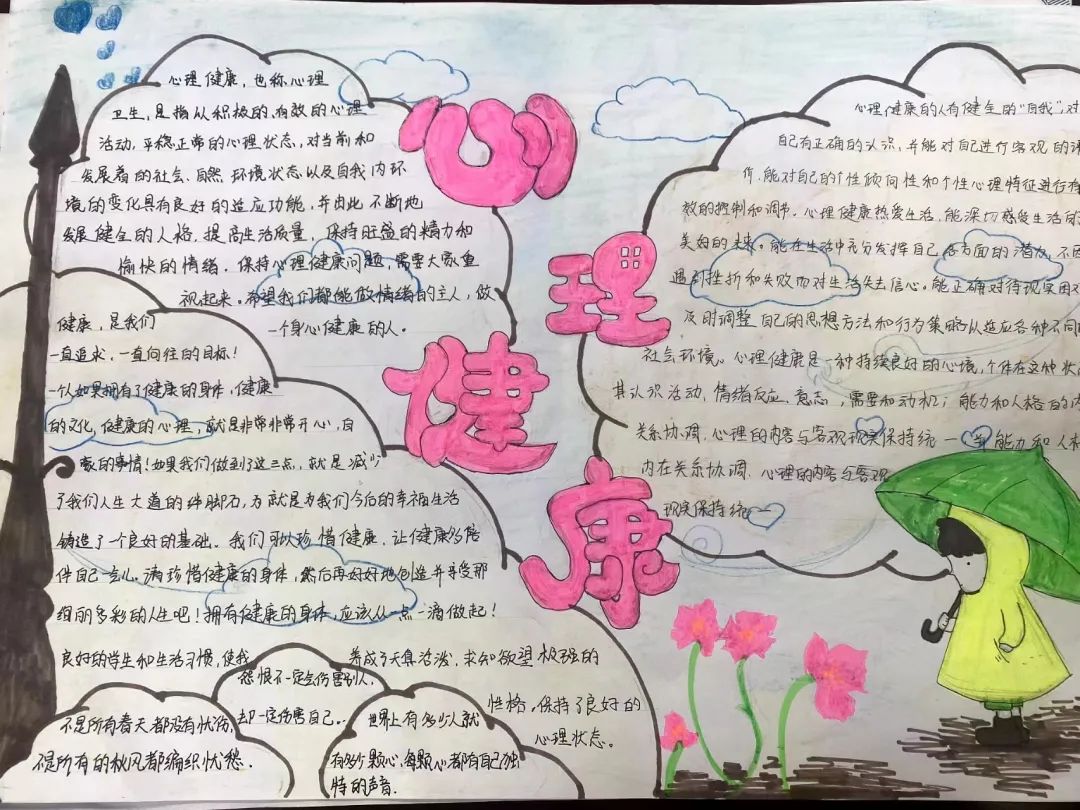 心理健康
心理健康，也称心理
卫生，是指从积极的、有效的心理
活动，平稳正常的心理状态，对当前和
发展着的社会、自然、环境状态以及自我内环
境的变化具有良好的适应功能，并由此不断地
发展健全的人格，提高生活质量，保持旺盛的精力和
愉快的情绪。保持心理健康问题，需要大家重
视起来。希望我们都能做情绪的主人，做
一个身心健康的人。
健康，是我们
一直追求、一直向往的目标！
一个人如果拥有了健康的身体，健康
的文化，健康的心理，就是非常非常开心，自
豪的事情！如果我们做到了这三点，就是减少
了我们人生大道的绊脚石，为就是为我们今后的幸福生活
铸造了一个良好的基础。我们可以珍惜健康，让健康多陪
伴自己一会儿。请珍惜健康的身体，然后再好好地创造并享受那
绚丽多彩的人生吧！拥有健康的身体，应该从一点一滴做起！
良好的学生和生活习惯，使我
养成了天真活泼，求知欲望极强的
性格。保持了良好的
心理状态。
怨恨不一定会伤害别人，
却一定伤害自己..
不是所有春天都没有忧伤，
不是所有的秋风都编织忧愁。
世界上有多少人就
有多少颗心，每颗心都有自己独
特的声音.
心理健康的人有健全的“自我”，对
自己有正确的认识，并能对自己进行客观的评
价，能对自己的个性倾向性和个性心理特征进行有
效的控制和调节。心理健康热爱生活，能深切感受生活的
美好的未来。能在生活中充分发挥自己各方面的潜力，不因
遇到挫折和失败而对生活失去信心。能正确对待现实困难
及时调整自己的思想方法和行为策略以适应各种不同的
社会环境。心理健康是一种持续良好的心境，个体在这种状
其认识活动、情绪反应、意志，需要和动机；能力和人格的内
关系协调，心理的内容与客观现实保持统一 能力和人格
内在关系协调，心理的内容与客观
现实保持统一